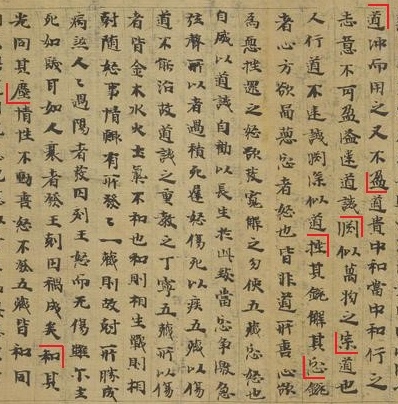 道沖而用之又不盈道貴中和當中和行之
志意不可盈溢違道誡渊似萬物之宗道也
人行道不違誡渊深似道挫其銳解其忿銳
者心方欲啚惡忿者怒也皆非道所喜心欲
為惡挫還之怒欲發寬解之勿使五藏忿怒也
自威以道誡自勸以長生於此致當忿爭激急
弦聲所以者過積死遲怒傷死以疾五藏以傷
道不能治故道誡之重教之丁寧五藏所以傷
者皆金木水火土氣不和也和則相生戰則相
剋隨怒事情輒有所發發一藏則故剋所勝成
病煞人人遇陽者發囚刻王怒而无傷雖尒去
死如髮耳如人衰者發王刻囚禍成矣和其
光同其塵情性不動喜怒不發五藏皆和同